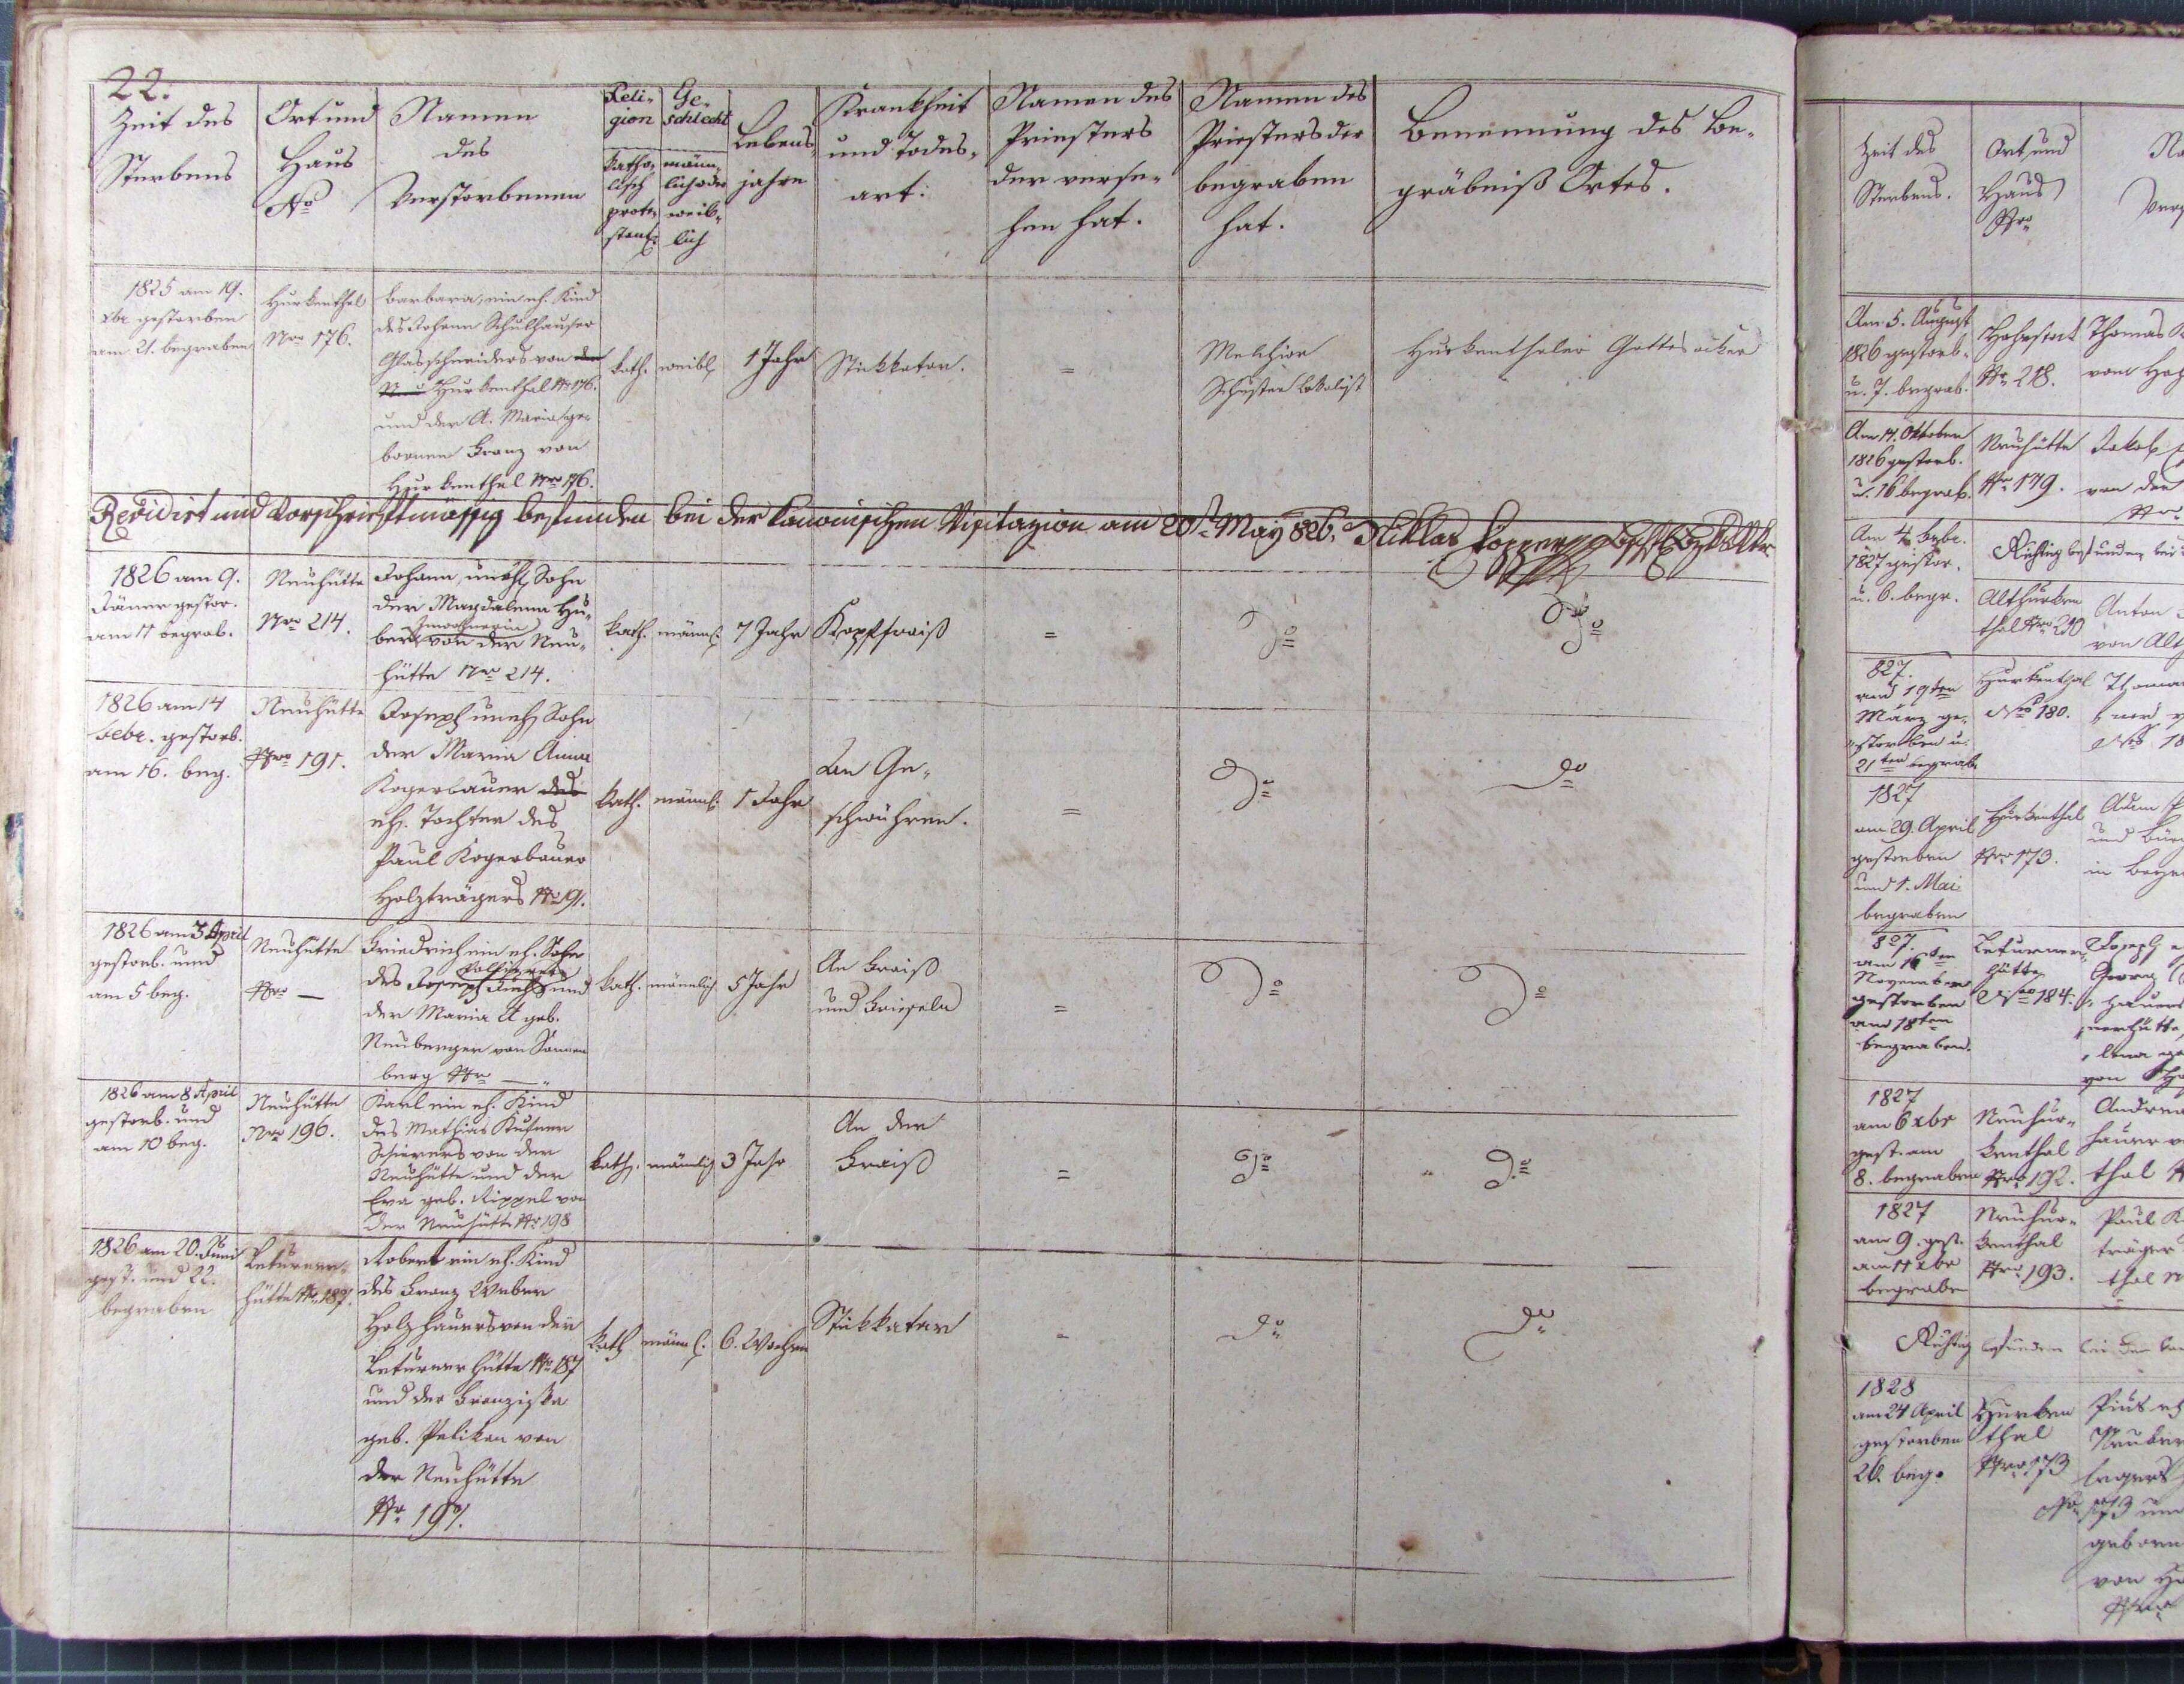 22.
Zeit des
Sterbens
Ort und
Haus
No
Namen
des
Verstorbenen
Reli-
gion
katho-
lisch
prote-
stant:
Ge-
schlecht
männ-
lich oder
weib-
lich
Lebens-
jahre
Krankheit
und Todes-
art.
Namen des
Priesters
der verse-
hen hat.
Namen des
Priesters der
begraben
hat.
Benennung des Be-
gräbniß Ortes.
1825 am 19.
xbr gestorben
am 21. begraben
Hurkenthal
Nro 176.
Barbara, ein eh. Kind
des Johann Schulhauser
Glasschneiders von der
Hurkenthal Nr 176.
und der A. Maria ge-
bornen Franz von
Hurkenthal Nro 176.
kath.
weibl.
1 Jahr
Stikkatar.
=
Melchior
Schuster Lokalist
Hurkenthaler Gottesacker
Revidirt und Vorschriftmässig befunden bei der kanonischen Visitazion am 20t May 826. Niklas
1826 am 9.
Jäner gestor.
am 11 begrab.
Neuhütte
Nro 214.
Johann, unehl. Sohn
der Magdalena Hu-
ber Inwohnerin von der Neu-
hütte Nro 214.
kath.
männl:
7 Jahr
Kopffraiß
=
do
do
1826 am 14
Febr. gestorb.
am 16. beg.
Neuhütte
Nro 191.
Joseph uneh. Sohn
der Maria Anna
Kogerbauer des
eh. Tochter des
Paul Kogerbauer
Holzträgers Nr 191.
kath.
männl:
1 Jahr
An Ge-
schwühren.
=
do
do
1826 am 3 April
gestorb. und
am 5 beg.
Neuhütte
Nro —
Friedrich ein eh. Sohn
des Joseph und
der Maria A geb.
Neuberger von Sonnen
berg Nr —
kath.
männlich
5 Jahr
An Fraiß
und Frieseln
=
do
do
1826 am 8 April
gestorb. und
am 10 beg.
Neuhütte
Nro 196.
Karl ein eh. Kind
des Mathias
Schierers von der
Neuhütte und der
Eva geb. Rippel von
der Neuhütte Nr 198
kath.
männlich
3 Jahr
An der
Fraiß
=
do
do
1826 am 20. Juni
gest. und 22.
begraben
Leturner-
hütte Nr. 187.
Robert ein eh. Kind
des Franz Weber
Holzhauers von der
Leturnerhütte Nr 187
und der Franziska
geb. Pelikan von
der Neuhütte
Nr. 197.
kath
männl:
6. Wochen
Stikkatar
=
do
do
Zeit des
Sterbens.
Ort und
Haus
Nro
Am 5. August
1826 gestorb.
u. 7. begrab.
Nr 218.
Thomas
vom
Am 14. Oktober
1826 gestorb.
u. 16 begrab.
Neuhütte
Nro 179.
Jakob
von der
Nro
Am 4. Febr.
1827 gestor.
u. 6. begr.
Richtig befunden bei
Althurken
thal Nro 210
Anton
von Alt
827.
am 19ten
März ge-
storben u.
21ten begrab.
Hurkenthal
Nro 180.
Thomas
1827
am 29. April
gestorben
und 1. Mai
begraben
Hurkenthal
Nro 173.
Adam
und
in
827.
am 16ten
November
gestorben
am 18ten
begraben.
Leturner
hütte
Nro 184.
Joseph
Georg
hauers
nerhütte,
von
1827
am 6 xbr
gest. am
8. begraben
Neuhur-
kenthal
Nro 192.
Andreas
hauer
thal
1827
am 9. gest.
am 11 xbr
begrabe
Neuhur-
kenthal
Nro 193.
Paul
träger
thal
Richtig befunden bei der
1828
am 24 April
gestorben
26. beg.
Hurken
thal
Nro 173
Pius eh
Neuber
legers
Nro 173 und
geborn
von
Nro